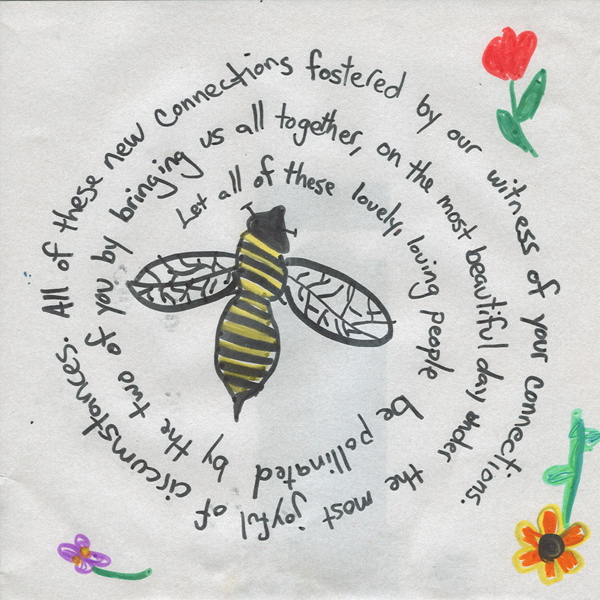 Let all of these lovely, loving people be pollinated by the two of you by bringing us all together, on the most beautiful day under the most joyful of circumstances. All of these new connections fostered by our witness of your connections.